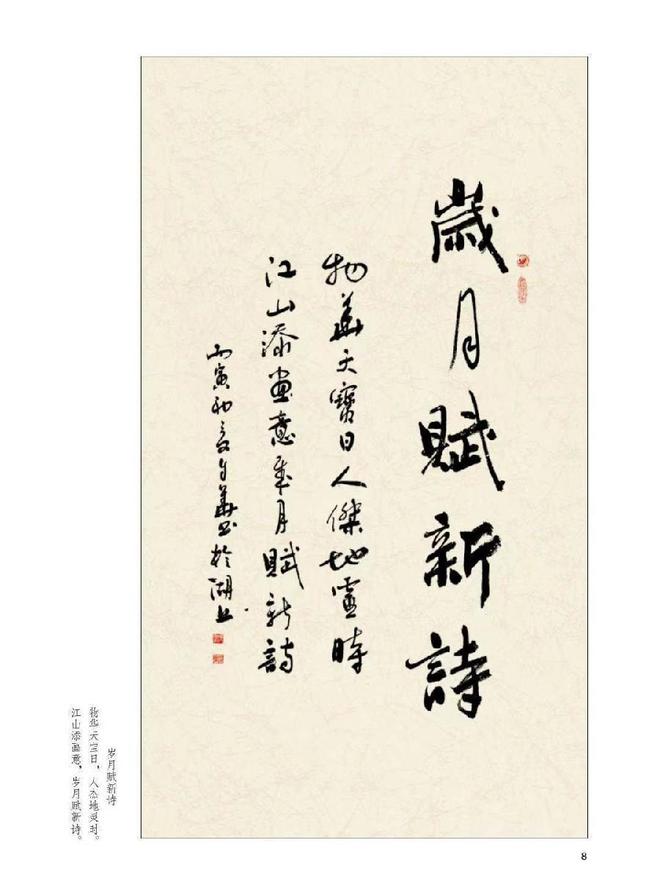 歲月賦新詩
物華天寶日人傑地靈時
江山添畫意歲月賦新詩
丙寅初夏 華書於湖上
岁月赋新诗
物华天宝日，人杰地灵时。
江山添画意，岁月赋新诗。
8